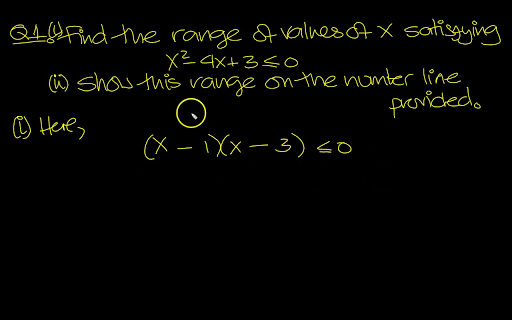 Q1.(i) Find the range of values of x satisfying
x² - 4x + 3 ≤ 0
(ii) Show this range on the number line
provided.
(i) Here,
(x - 1)(x - 3) ≤ 0